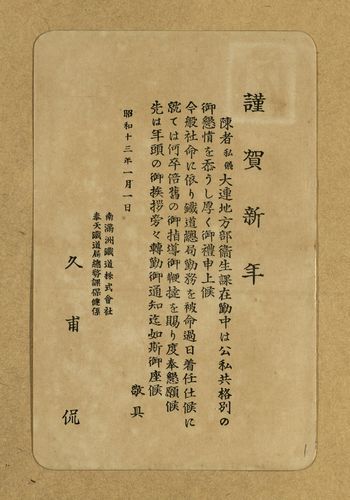 謹賀新年
陳者私儀大連地方部衞生課在勤中は公私共格別の
御懇情を忝うし厚く御禮申上候
今般社命に依り鐵道總局勤務を被命過日着任仕候に
就ては何卒倍舊の御指導御鞭撻を賜り度奉懇願候
先は年頭の御挨拶旁々轉勤御通知迄如斯御座候
敬具
昭和十三年一月一日
南滿洲鐵道株式會社
奉天鐵道局總務課保健係
久甫侃